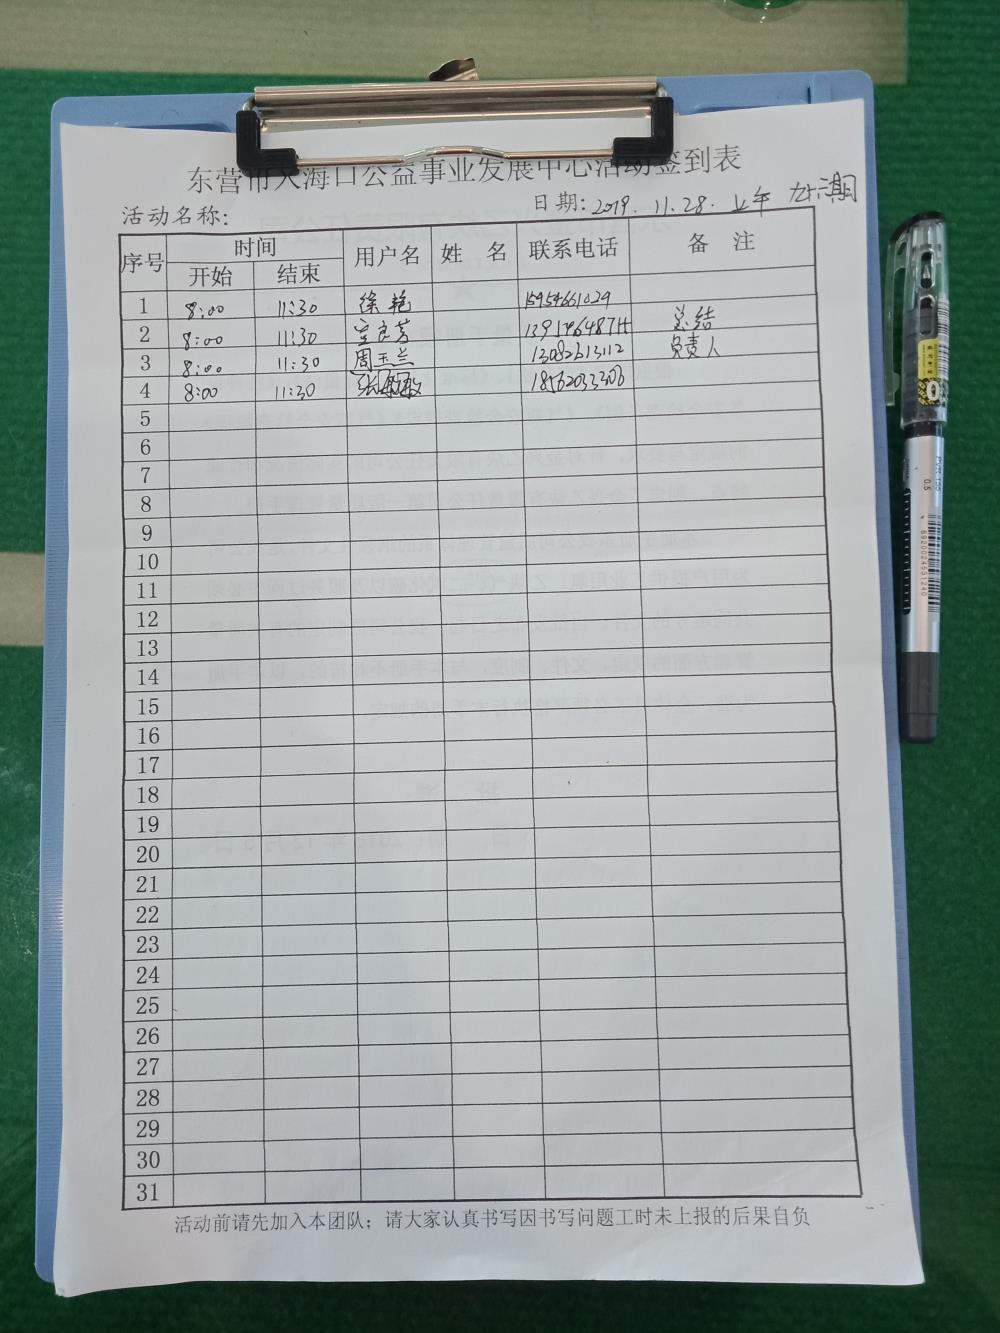 东营市入海口公益事业发展中心活动签到表
活动名称: 日期: 2019.11.28. 上午
序号 时间 用户名 姓 名 联系电话 备 注
开始 结束
1 8:00 11:30 徐艳 15954661029
2 8:00 11:30 总结
3 8:00 11:30 周玉兰 13082613112 负责人
4 8:00 11:30 18562033306
5
6
7
8
9
10
11
12
13
14
15
16
17
18
19
20
21
22
23
24
25
26
27
28
29
30
31
活动前请先加入本团队；请大家认真书写因书写问题工时未上报的后果自负
0.5